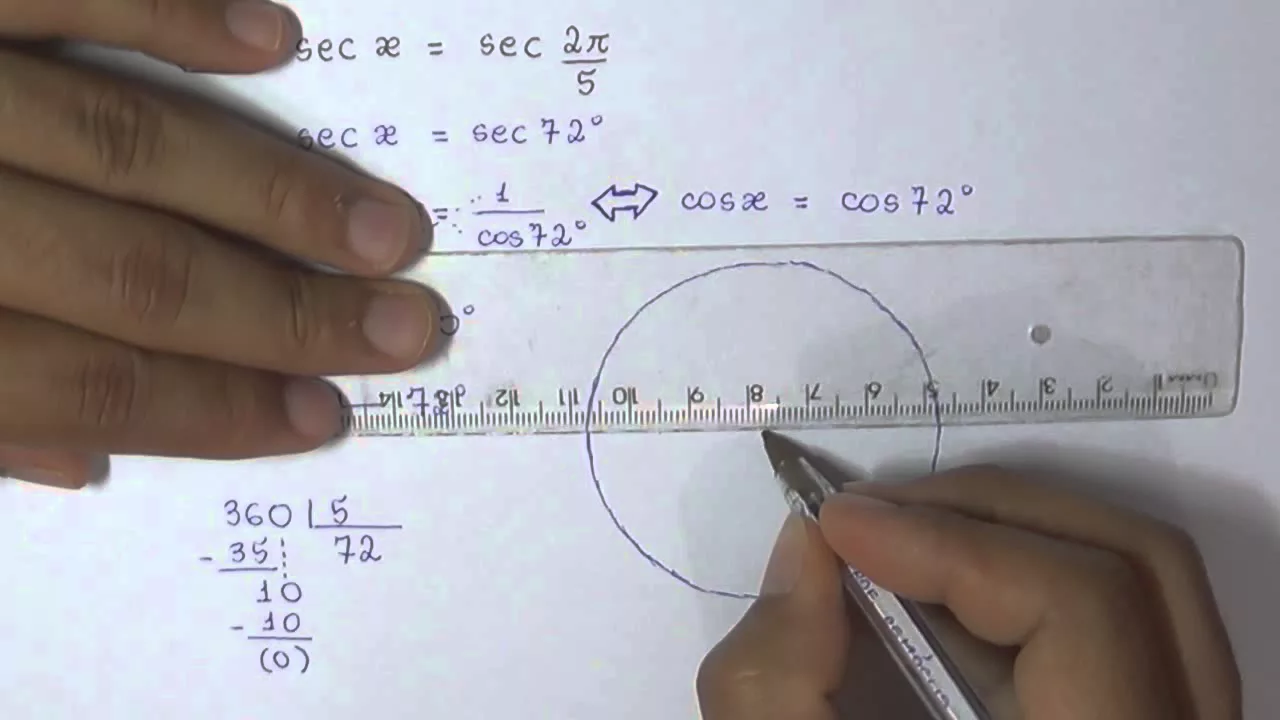 sec x = sec 2π/5
sec x = sec 72°
= 1/cos 72° ⇔ cos x = cos 72°
0°
14 13 12 11 10 9 8 7 6 5 4 3 2 1
360 | 5
- 35 72
10
- 10
(0)